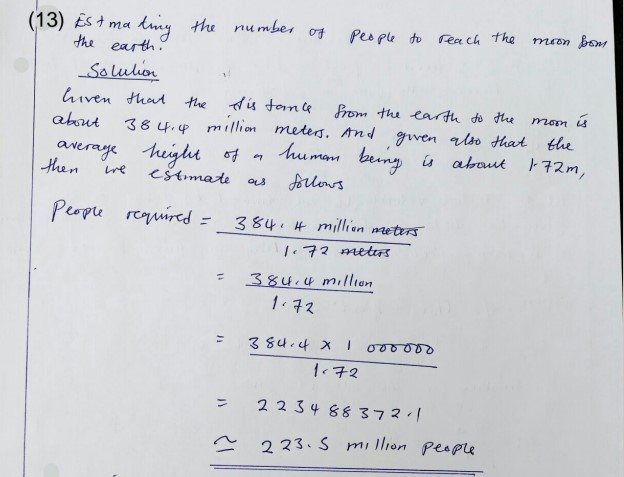 (13) Estmating the number of people to reach the moon from
the earth.
Solution
Given that the distance from the earth to the moon is
about 384.4 million meters. And given also that the
average height of a human being is about 1.72m,
then we estimate as follows
People required = 384.4 million meters
1.72 meters
= 384.4 million
1.72
= 384.4 x 1 000000
1.72
= 223488372.1
≃ 223.5 million people